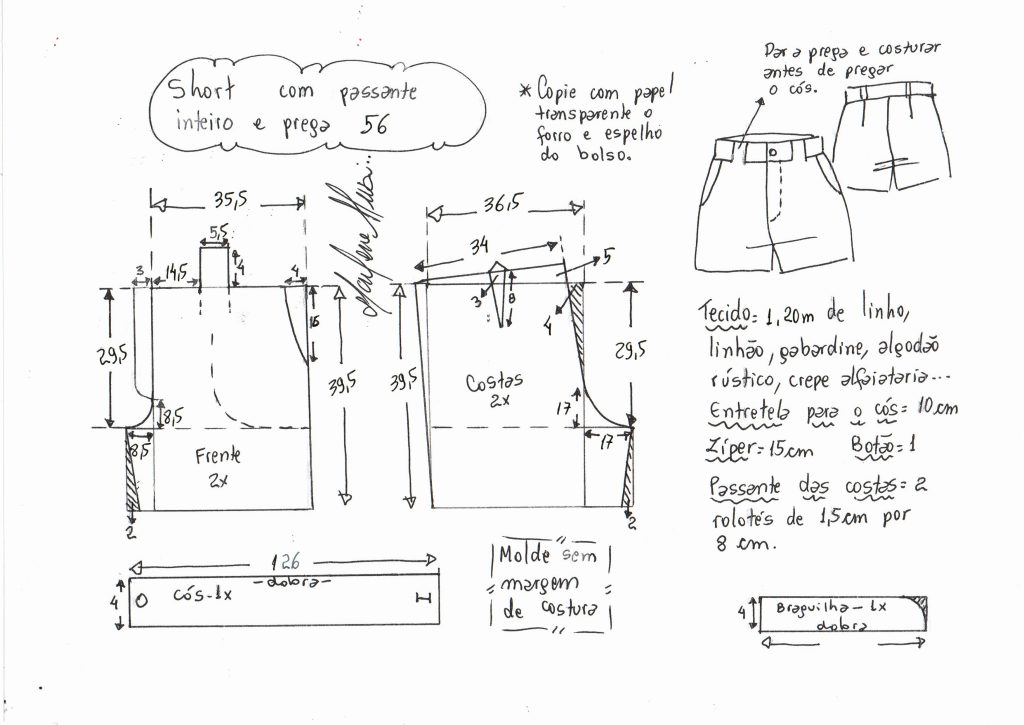 Short com passante
inteiro e prega 56
* Copie com papel
transparente o
forro e espelho
do bolso.
Dar a prega e costurar
antes de pregar
o cós.
35,5
5,5
3
14,5
4
4
15
29,5
39,5
8,5
8,5
Frente
2x
2
36,5
34
5
3
8
4
39,5
29,5
Costas
2x
17
17
2
Tecido= 1,20m de linho,
linhão, gabardine, algodão
rústico, crepe alfaiataria...
Entretela para o cós= 10cm
Zíper= 15cm Botão= 1
Passante das costas= 2
rolotés de 1,5cm por
8 cm.
126
-dobra-
4
cós-1x
Molde sem
margem
de costura
4
Braguilha-1x
dobra